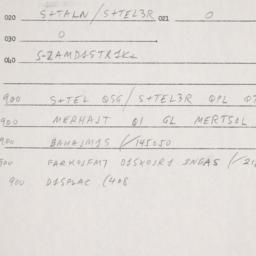 020 S+TALN/S+TEL3R 021 0
030 0
040 S-ZAMD1STR1K+
900 S+TEL QSG/S+TEL3R QPL
900 MERHAJT QI GL MERTSOL
900 BAHAJM1S (/145050
900 FARKOJFM7 D1SKOJR1 2NGAS (/21
900 D1SPLAC (408